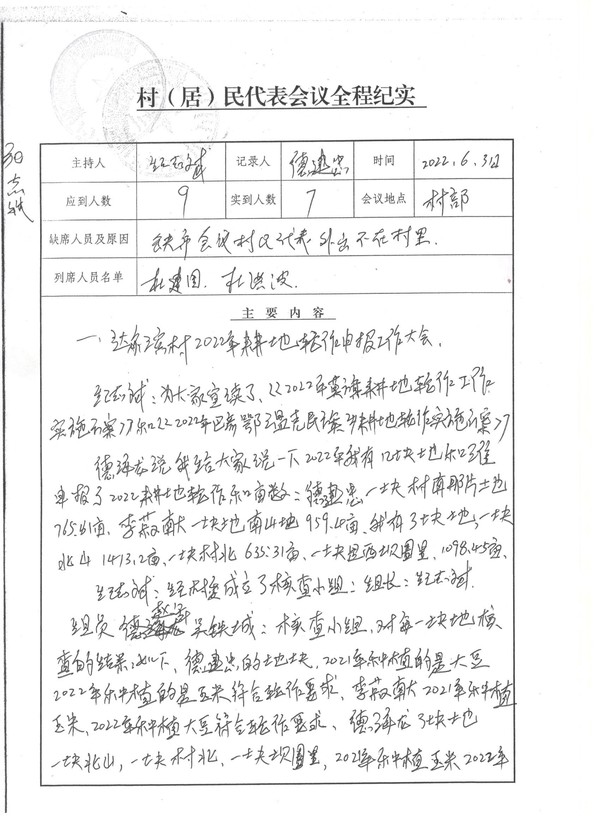 村（居）民代表会议全程纪实
主持人 记录人 德建忠 时间 2022.6.3日
应到人数 9 实到人数 7 会议地点 村部
缺席人员及原因 缺席会议村民代表外出不在村里.
列席人员名单 杜建国. 杜洪波.
主要内容
一、村2022年耕地轮作申报工作大会.
为大家宣读了《2022年莫旗耕地轮作工作
实施方案》和《2022年巴彦鄂温克民族乡耕地轮作实施方案》
德泽龙说我给大家说一下2022年我有几块土地和
申报了2022耕地轮作和亩数：德建忠一块村南那片土地
765.81亩. 李 一块地南山地959.4亩. 我有3块土地，一块
北山1473.2亩、一块村北635.31亩、一块 1098.45亩.
：经村 成立了核查小组：组长：
组员 德 吴铁城：核查小组，对每一块地核
查的结果，如下、德建忠的地块，2021年种植的是大豆
2022年种植的是玉米符合轮作要求、李 2021年种植
玉米、2022年种植大豆符合轮作要求、德泽龙3块土地
一块北山，一块村北、一块 ，2021年种植玉米2022年